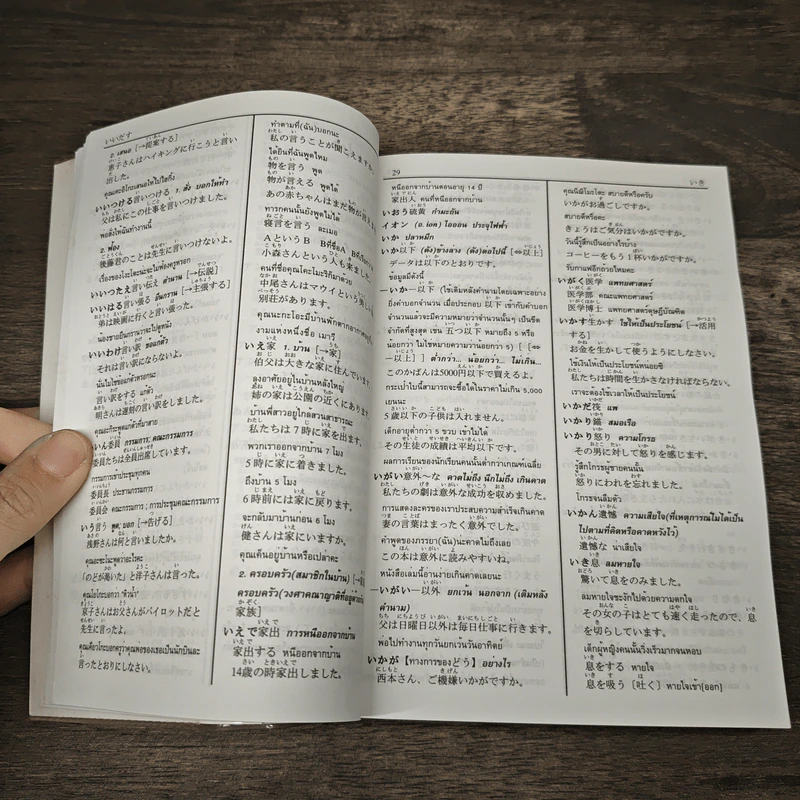 いいだす
2. เสนอ [→提案する]
恵子さんはハイキングに行こうと言い
出した。
คุณเคอิโกะเสนอให้ไปไฮกิ้ง
いいつける言いつける 1. สั่ง บอกให้ทำ
父は私にこの仕事を言いつけました。
พ่อสั่งให้ฉันทำงานนี้
2. ฟ้อง
後藤君のことは先生に言いつけないよ。
いいつたえ言い伝え ตำนาน [→伝説]
いいはる言い張る ยืนกราน [→主張する]
弟は映画に行くと言い張った。
いいわけ言い訳 ข้อแก้ตัว
それは言い訳にならないよ。
言い訳をする แก้ตัว
明さんは遅刻の言い訳をしました。
いいん委員 กรรมการ; คณะกรรมการ
委員たちは全員出席しています。
กรรมการเข้าประชุมทุกคน
委員長 ประธานกรรมการ
委員会 คณะกรรมการ; การประชุมคณะกรรมการ
いう言う พูด; บอก [→告げる]
浅野さんは何と言いましたか。
คุณอะซะโนะพูดว่าอะไรคะ
「のどが渇いた」と洋子さんは言った。
คุณโยโกะบอกว่า "หิวน้ำ"
京子さんはお父さんがパイロットだと
先生に言ったよ。
言ったとおりにしなさい。
ทำตามที่(ฉัน)บอกนะ
私の言うことが聞こえますか
ได้ยินที่ฉันพูดไหม
物を言う พูด
物が言える พูดได้
あの赤ちゃんはまだ物が言え
ทารกคนนั้นยังพูดไม่ได้
寝言を言う ละเมอ
AというB Bที่ชื่อA
小森さんという人も来ました。
คนที่ชื่อคุณโคะโมะริก็มาด้วย
中尾さんはマウイという美しい
別荘があります。
งามแห่งหนึ่งชื่อ เมารี
いえ家 1. บ้าน [→家]
伯父は大きな家に住んでいます
ลุงอาศัยอยู่ในบ้านหลังใหญ่
姉の家は公園の近くにあり
บ้านพี่สาวอยู่ใกล้สวนสาธารณะ
私たちは7時に家を出ます。
พวกเราออกจากบ้าน 7 โมง
5時に家に着きました。
ถึงบ้าน 5 โมง
6時前には家に戻ります。
จะกลับมาบ้านก่อน 6 โมง
健さんは家にいますか。
คุณเค็นอยู่บ้านหรือเปล่าคะ
2. ครอบครัว(สมาชิกในบ้าน)
ครอบครัว(วงศาคณาญาติที่อยู่ด้วยกัน
家族]
いえで家出 การหนีออกจากบ้าน
家出する หนีออกจากบ้าน
14歳の時家出しました。
29
いき
หนีออกจากบ้านตอนอายุ 14 ปี
家出人 คนที่หนีออกจากบ้าน
いおう硫黄 กำมะถัน
イオン (อ. ion) ไอออน ประจุไฟฟ้า
いか ปลาหมึก
いか以下 (ดัง)ข้างล่าง (ดัง)ต่อไปนี้ [⇔以上]
データは以下のとおりです。
ข้อมูลมีดังนี้
－いか－以下 (ใช้เติมหลังคำนามโดยเฉพาะอย่าง
ยิ่งคำบอกจำนวน เมื่อประกอบ 以下 เข้ากับคำบอก
จำนวนแล้วจะมีความหมายว่าจำนวนนั้นๆ เป็นขีด
จำกัดที่สูงสุด เช่น 五つ以下 หมายถึง 5 หรือ
น้อยกว่า ไม่ใช่หมายความว่าน้อยกว่า 5) [ [⇔
－以上] ] ต่ำกว่า... น้อยกว่า... ไม่เกิน...
このかばんは5000円以下で買えるよ。
กระเป๋าใบนี้สามารถจะซื้อได้ในราคาไม่เกิน 5,000
เยนนะ
5歳以下の子供は入れません。
เด็กอายุต่ำกว่า 5 ขวบ เข้าไม่ได้
その生徒の成績は平均以下です。
ผลการเรียนของนักเรียนคนนั้นต่ำกว่าเกณฑ์เฉลี่ย
いがい意外～な คาดไม่ถึง นึกไม่ถึง เกินคาด
私たちの劇は意外な成功を収めました。
การแสดงละครของเราประสบความสำเร็จเกินคาด
妻の言葉はまったく意外でした。
คำพูดของภรรยา(ฉัน)นะคาดไม่ถึงเลย
この本は意外に読みやすいね。
หนังสือเล่มนี้อ่านง่ายเกินคาดเลยนะ
－いがい－以外 ยกเว้น นอกจาก (เติมหลัง
คำนาม)
父は日曜日以外は毎日仕事に行きます。
พ่อไปทำงานทุกวันยกเว้นวันอาทิตย์
いかが [ทางการของどう] อย่างไร
西本さん、ご機嫌いかがですか。
คุณนิชิโมะโตะ สบายดีหรือครับ
いかがお過ごしですか。
สบายดีหรือคะ
きょうはご気分はいかがですか。
วันนี้รู้สึกเป็นอย่างไรบ้าง
コーヒーをもう1杯いかがですか。
รับกาแฟอีกถ้วยไหมคะ
いがく医学 แพทยศาสตร์
医学部 คณะแพทยศาสตร์
医学博士 แพทยศาสตรดุษฎีบัณฑิต
いかす生かす ใช้ให้เป็นประโยชน์ [→活用
する]
お金を生かして使うようにしなさい。
ใช้เงินให้เป็นประโยชน์หน่อยซิ
私たちは時間を生かさなければならない。
เราจะต้องใช้เวลาให้เป็นประโยชน์
いかだ筏 แพ
いかり錨 สมอเรือ
いかり怒り ความโกรธ
その男に対して怒りを感じます。
รู้สึกโกรธผู้ชายคนนั้น
怒りにわれを忘れました。
โกรธจนลืมตัว
いかん遺憾 ความเสียใจ(ที่เหตุการณ์ไม่ได้เป็น
ไปตามที่คิดหรือคาดหวังไว้)
遺憾な น่าเสียใจ
いき息 ลมหายใจ
驚いて息をのみました。
ลมหายใจชะงักไปด้วยความตกใจ
その女の子はとても速く走ったので、息
を切らしています。
เด็กผู้หญิงคนนั้นวิ่งเร็วมากจนหอบ
息をする หายใจ
息を吸う [吐く] หายใจเข้า[ออก]